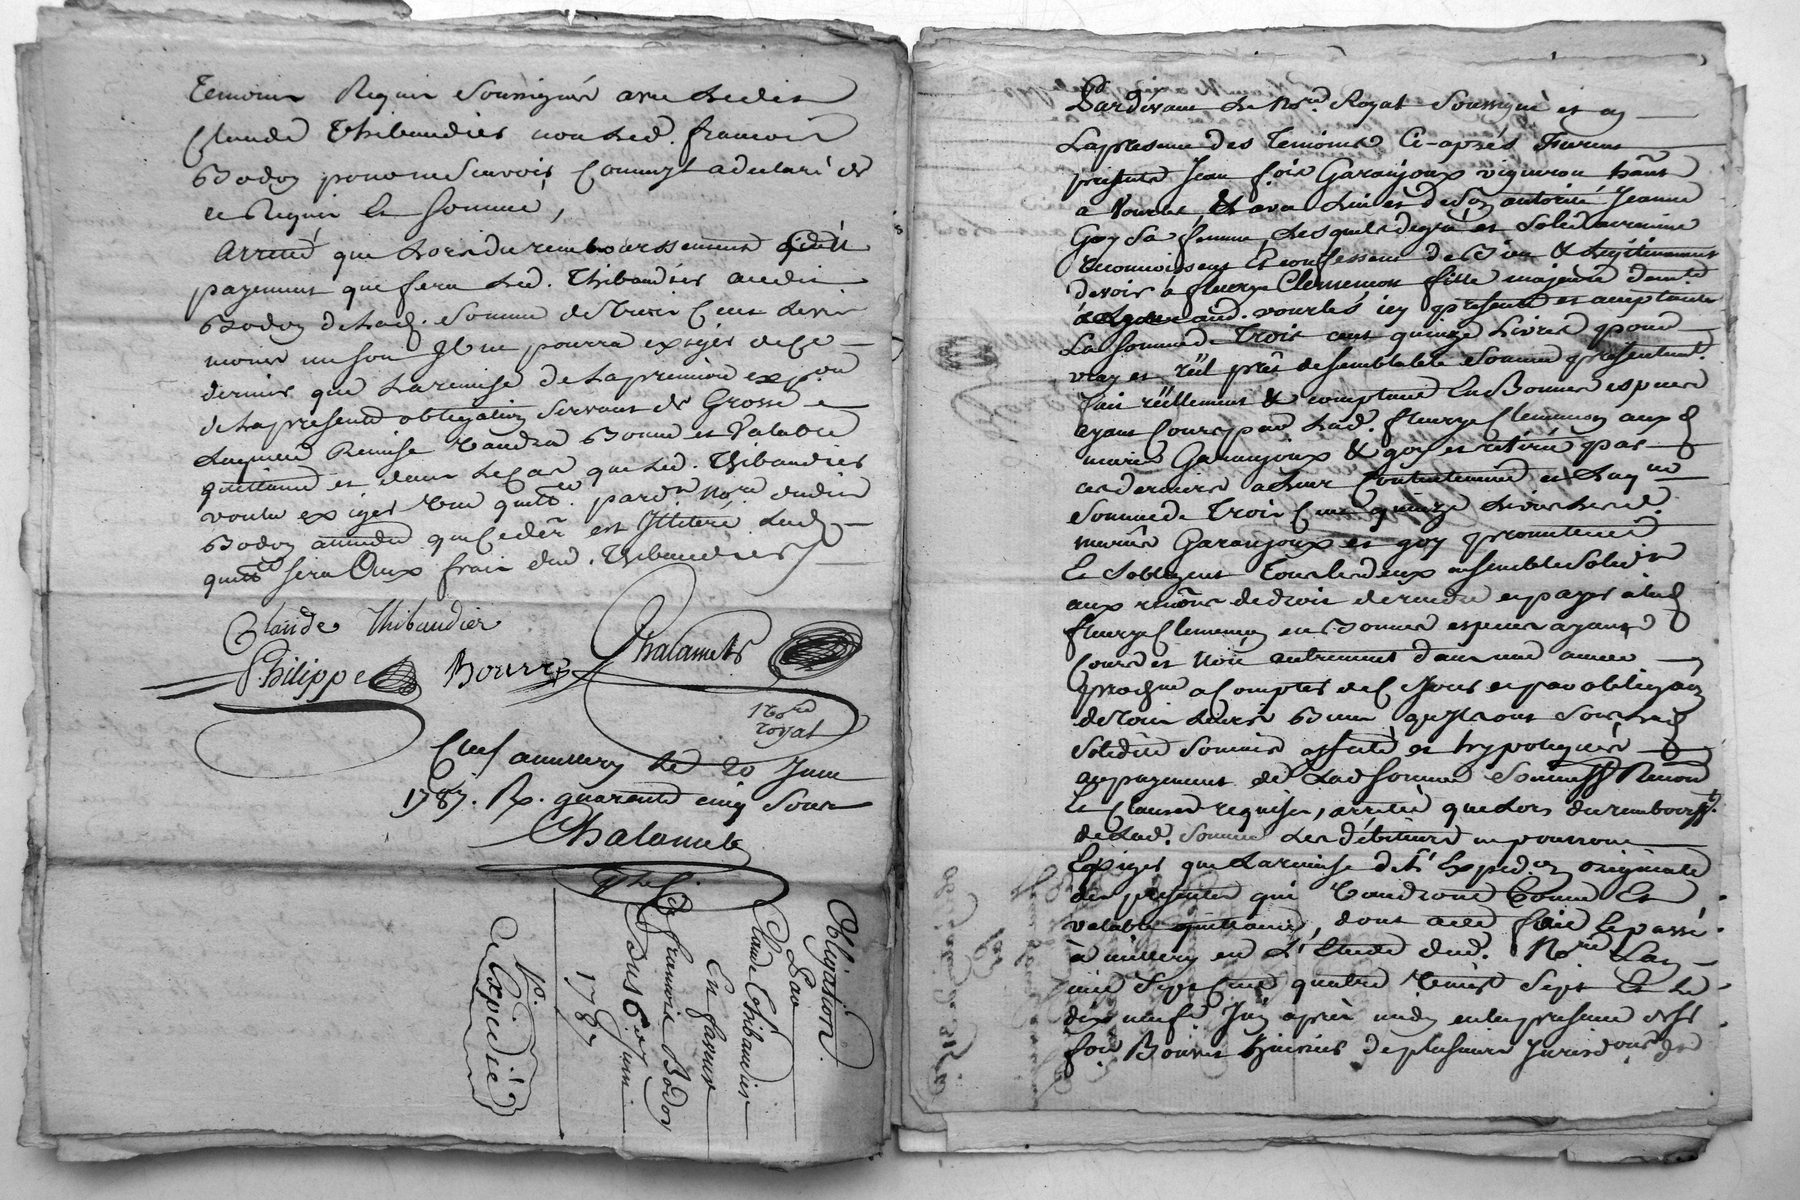 Temoins Requis Soussignés avec Ledit
Claude Thibaudier non Led. francois
Bodoy pour ne Scavoir Comm'il a declaré de
ce Requis Et Sommé,
arreté que Lors du remboursement
payement que fera Led. Thibaudier audit
Bodoy de Lad. Somme de Trois Cent Livres
moins un Sou Il ne pourra exiger de Ce
dernier que La remise de La premiere exp.on
de La presente obligation Servant de Grosse
Laquelle Remise Vaudra Bonne et Valable
quittance et dans Le Cas que Led. Thibaudier
voulu exiger une quitt.ce pard.t No.re dudit
Bodoy
quitt.ce Sera Aux frais dud. Thibaudier
Claude Thibaudier
Chalamel
Philippe Bourret
no.re royal
Cont. a millery Le 20 Juin
1787. R. quarante cinq Sous
Chalamel
Obligation
Par
Claude Thibaudier
En faveur
De francois Bodoy
Dus 6.e juin
1787
Expedié
Pardevant Le No.re Royal Soussigné et en
La presence des Temoins Ci-après Furent
presents Jean f.ois Garanjoux vigneron ha͞nt
a Vourles, Et avec Lui et de Son autorité Jeanne
Goy Sa femme, Lesquels de gré et Solidairement
reconnoissent Et confessent de Bien & Legitimement
devoir a fleurye Clemencon fille majeure dem.te
aud. vourles icy presente et acceptante
La Somme de Trois cent quinze Livres pour
vray et réel prêt de semblable Somme presentem.t
fait réellement & comptant En Bonnes especes
ayant Cours par Lad. fleurye Clemencon auxd
mariés Garanjoux & goy et retirée par
ces derniers a Leur Contentement et Laq.lle
Somme de Trois Cent quinze Livres Lesd.
mariés Garanjoux et goy promettent
Et Sobligent Tous Les deux ensemble Solid.t
aux re͞nons de droit de rendre et payer à Lad
fleurye Clemencon en Bonnes especes ayant
Cours et Non autrement dans une année
proch.ne a Compter de C Jour et par obligation
de Tous Leurs Biens qu'Ils ont Sous Lad
Solidité Soumis affecté et hypotequés
au payement de Lad Somme Soumiss.n Renon
Et Clauses requises, arreté que Lors du rembours.t
de Lad. Somme Les débiteurs ne pourront
Exiger que La remise de L'Exped.on originale
des presentes qui Vaudront Bonne Et
valable quittance, dont acte fait Et passé
à millery en L'Etude dud. No.re L'an
mil Sept Cent quatre Vingt Sept Et Le
dix neuf Juin après midy en la presence de Sr
f.ois Bourret huissier de plusieurs Jurisd.ons de